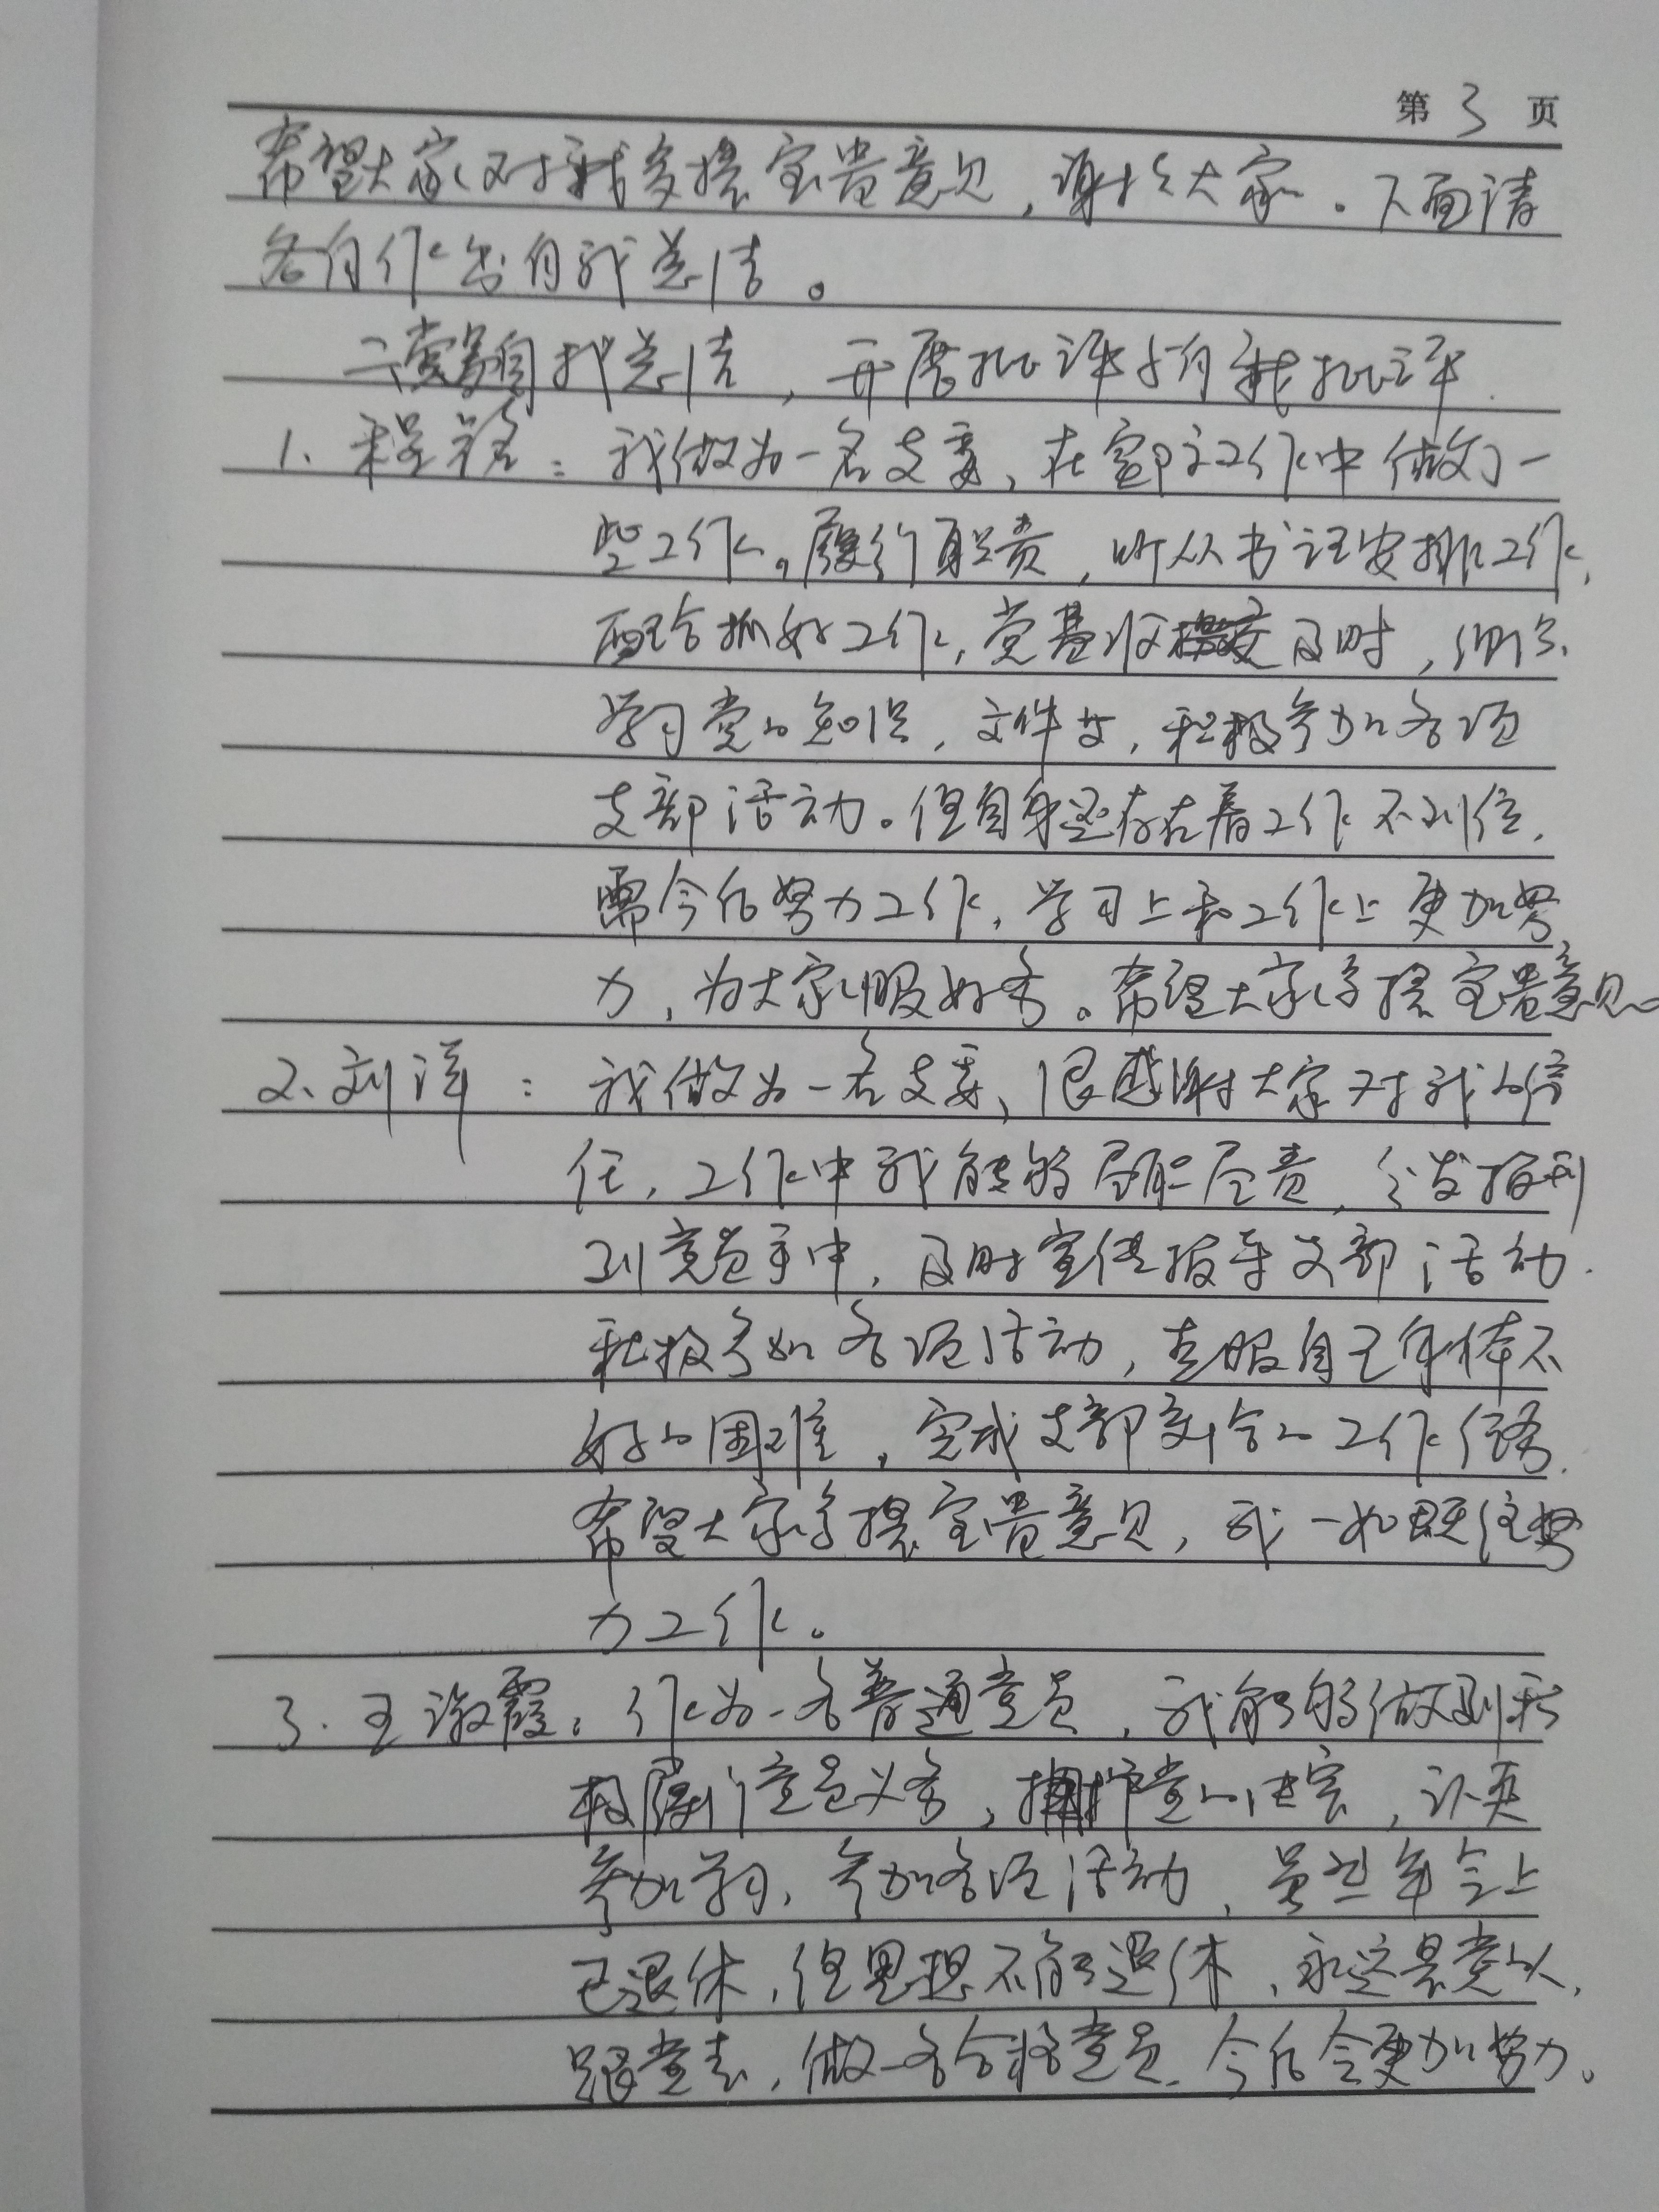 第 3 页
希望大家对我多提宝贵意见，谢谢大家。下面请
各自作出自我总结。
二、党员自我总结，开展批评与自我批评.
1、程铭：我做为一名支委，在室内工作中做了一
些工作。履行职责，听从书记安排工作，
配合抓好工作，党费收缴及时，认真
学习党的知识，文件等，积极参加各项
支部活动。但自身还存在着工作不到位，
需今后努力工作，学习上和工作上更加努
力，为大家服好务。希望大家多提宝贵意见。
2、刘洋：我做为一名支委，很感谢大家对我的信
任，工作中我能够尽职尽责，分发报刊
到党员手中，及时宣传报导支部活动.
积极参加各项活动，克服自己身体不
好的困难，完成支部交给的工作任务.
希望大家多提宝贵意见，我一如既往努
力工作。
3. 王淑霞：作为一名普通党员，我能够做到积
极履行党员义务，拥护党的决定，认真
参加学习，参加各项活动，虽然年令上
已退休，但思想不能退休，永远是党的人，
跟党走，做一名合格党员. 今后会更加努力。